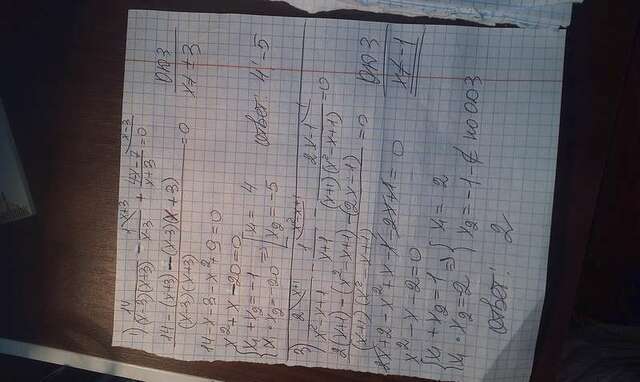 1) 14/((x-3)(x+3)) - 1/(x-3) + (4x-7)/(x+3) = 0
ОДЗ
x ≠ ±3
(14-(x+3)-(x-3)(x+3))/((x-3)(x+3)) = 0
14-x-3-x²+9=0
x²-x-20=0
{x₁+x₂=-1 x₁·x₂=-20 => [x₁=4 x₂=-5
Ответ: 4; -5
3) 2/(x²-x+1) - 1/(x+1) - (2x-1)/((x+1)(x²-x+1)) = 0
ОДЗ
x≠-1
(2(x+1)-(x²-x+1)-(2x-1))/((x+1)(x²-x+1)) = 0
2x+2-x²+x-1-2x+1=0
x²-x-2=0
{x₁+x₂=1 x₁·x₂=2 => { x₁=2 x₂=-1 - ∉ по ОДЗ
Ответ: 2